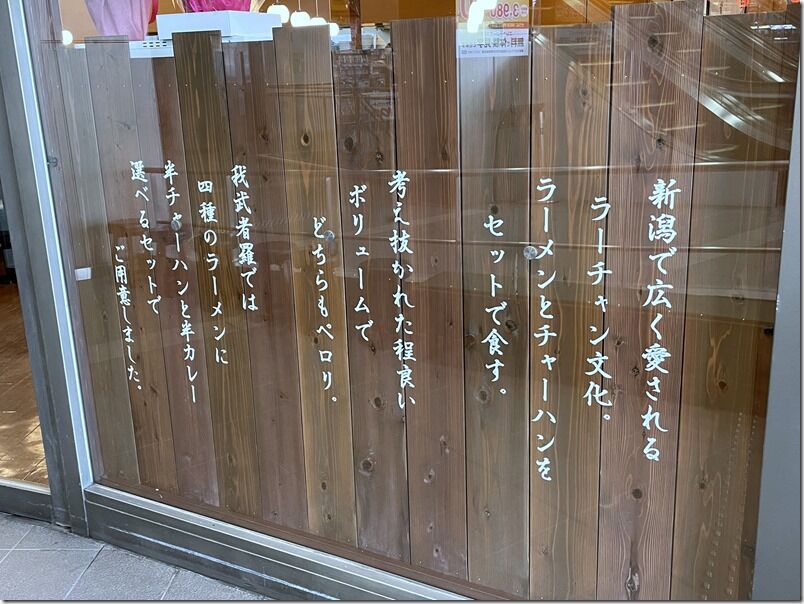 新潟で広く愛される
ラーチャン文化。
ラーメンとチャーハンを
セットで食す。
考え抜かれた程良い
ボリュームで
どちらもペロリ。
我武者羅では
四種のラーメンに
半チャーハンと半カレー
選べるセットで
ご用意しました。